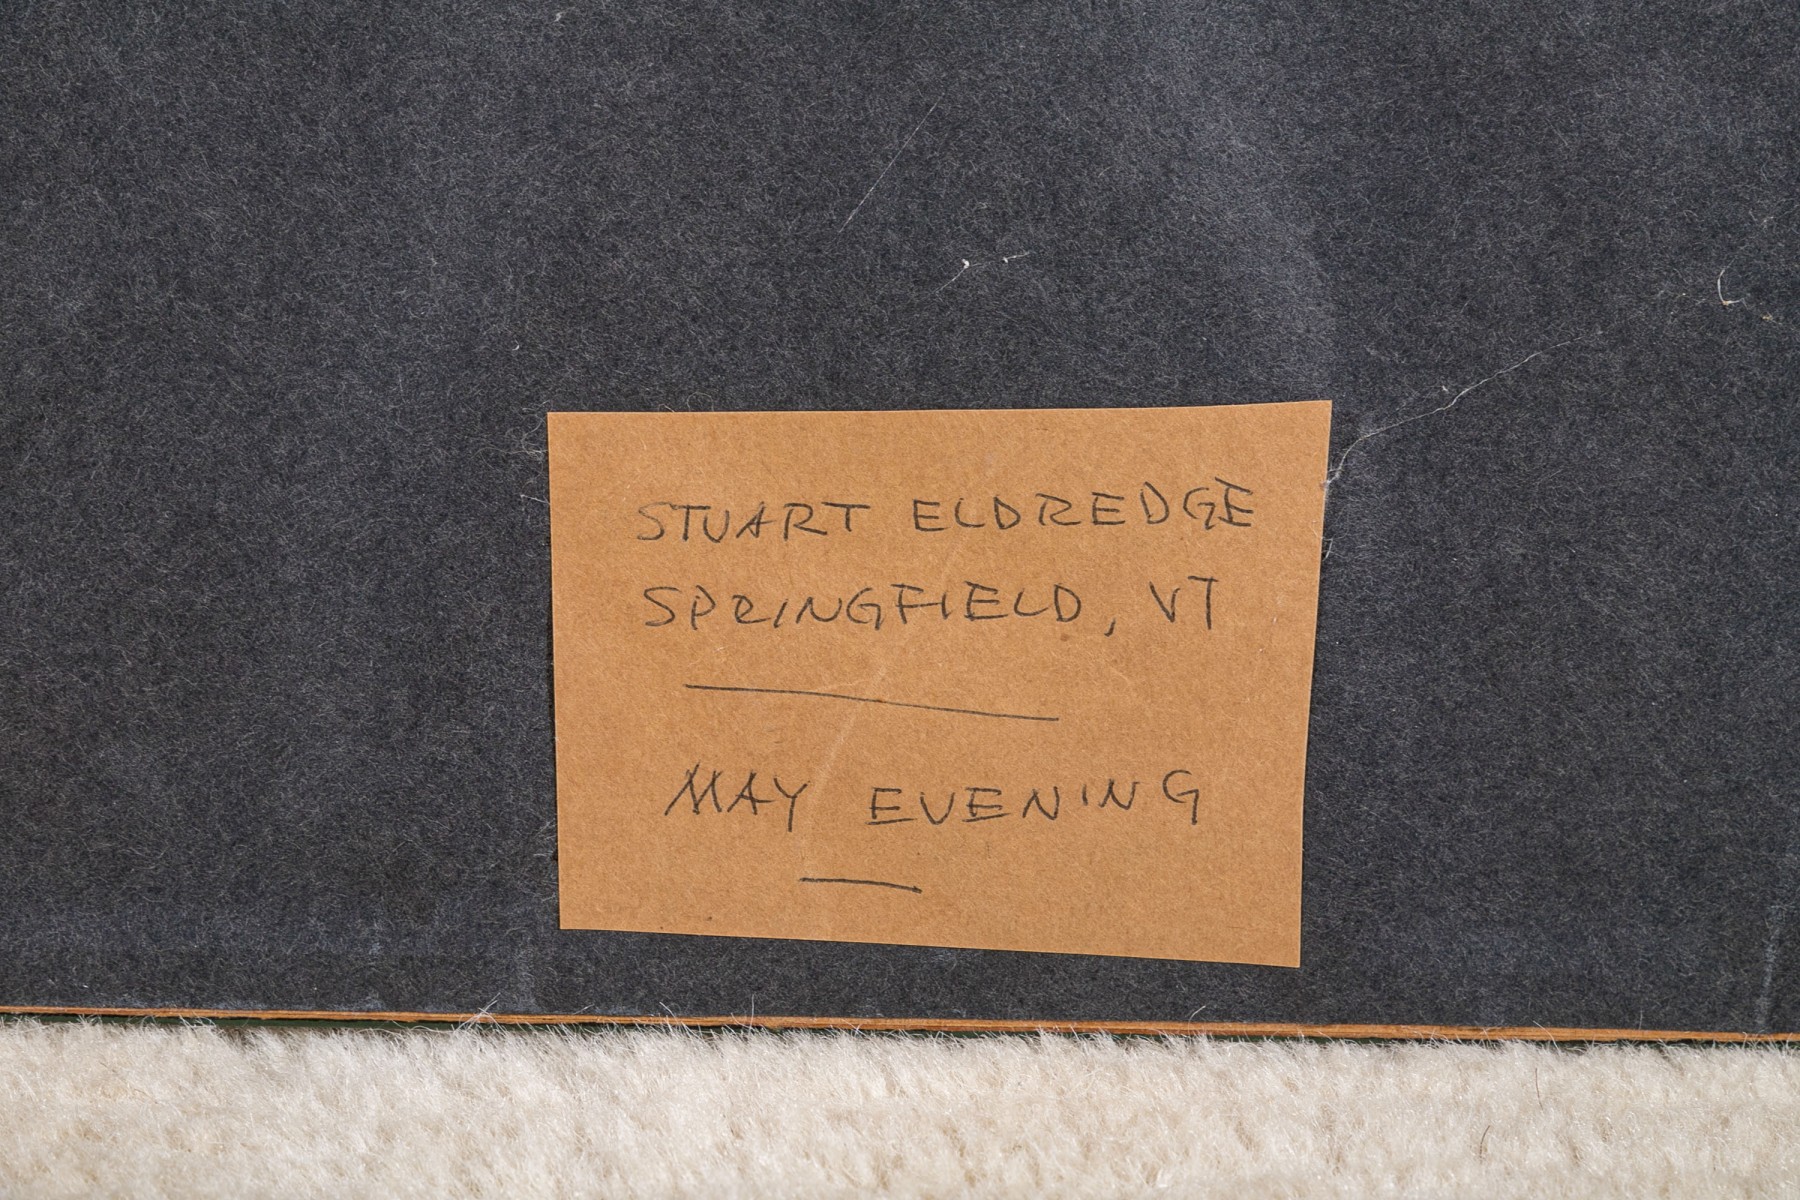 STUART ELDREDGE
SPRINGFIELD, VT
MAY EVENING